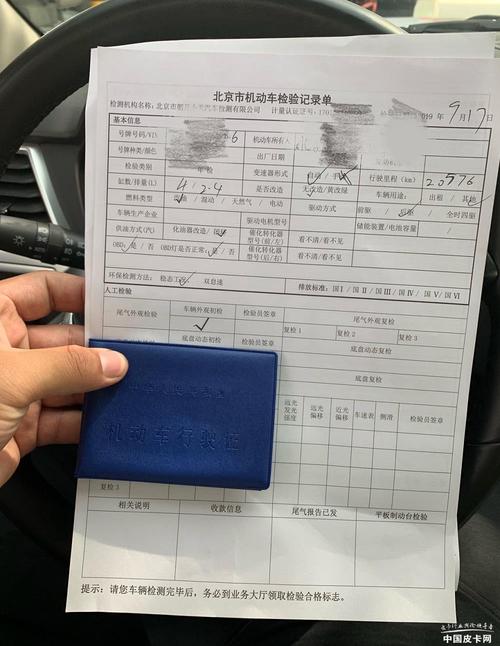 北京市机动车检验记录单
检测机构名称：北京市 汽车检测有限公司 计量认证证号：170 2019 年 9月17日
基本信息
号牌号码/VI 6 机动车所有人
号牌种类/颜色 出厂日期
检验类别 年检 变速器形式 自动/手
缸数/排量(L) 4/2.4 是否改造 无改造/黄改绿 行驶里程(km) 20976
燃料类型 油/混动/天然气/电动 驱动方式 车辆用途：出租/其他
前驱/后驱/全时四驱
车辆生产企业 驱动电机型号 储能装置/电池容量
供油方式(汽) 化油器改造/ 催化转化器型号(前/左) 看不清/看不见
OBD：是/否 OBD灯是否正常：是/否 催化转化器型号(后/右) 看不清/看不见
环保检测方法：稳态工况 双怠速 排放标准：国Ⅰ/国Ⅱ/国Ⅲ/国Ⅳ/国Ⅴ/国Ⅵ
人工检验
尾气外观检验 车辆外观初检 检验员签章 尾气外观复检
复检1 复检2 复检3
底盘动态检验 底盘动态初检 检验员签章 底盘动态复检
底盘复检
远光发光强度 远光偏移 近光偏移 车速表 侧滑 检验员签章
机动车行驶证
复检3
相关说明 收款信息 尾气报告已发 平板制动台检验
提示：请您车辆检测完毕后，务必到业务大厅领取检验合格标志。
皮卡行业舆论领导者
中国皮卡网